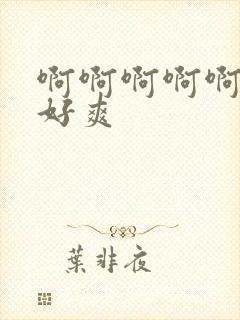 啊啊啊啊啊
好爽
葉非夜